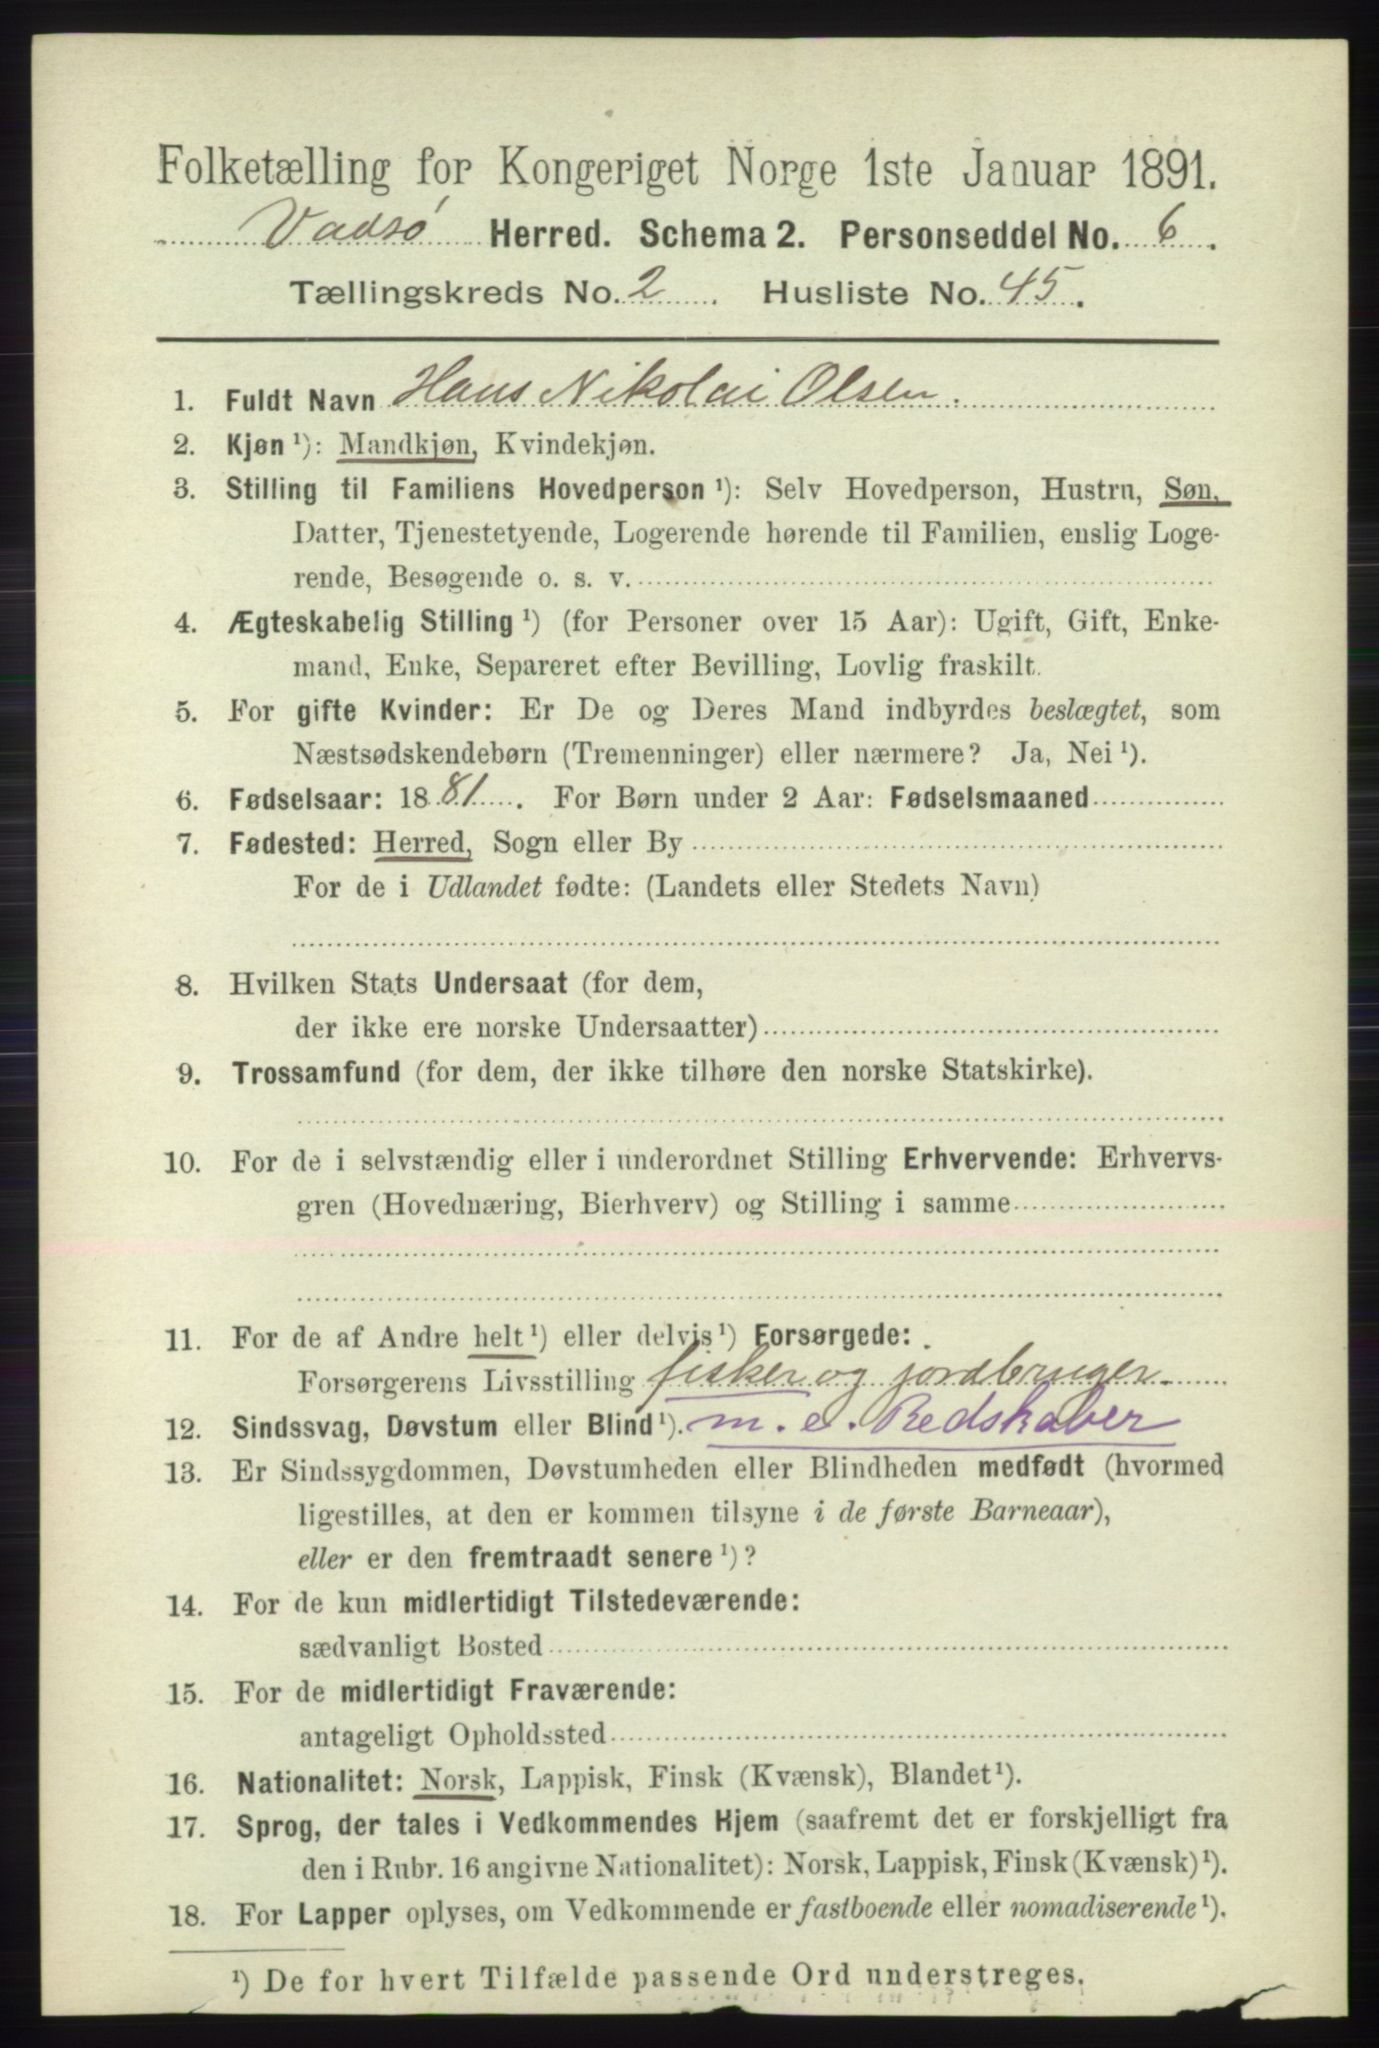 Folketælling for Kongeriget Norge 1ste Januar 1891.
Vadsø Herred. Schema 2. Personseddel No. 6.
Tællingskreds No. 2. Husliste No. 45.
1. Fuldt Navn Hans Nikolai Olsen.
2. Kjøn ¹): Mandkjøn, Kvindekjøn.
3. Stilling til Familiens Hovedperson ¹): Selv Hovedperson, Hustru, Søn,
Datter, Tjenestetyende, Logerende hørende til Familien, enslig Loge-
rende, Besøgende o. s. v.
4. Ægteskabelig Stilling ¹) (for Personer over 15 Aar): Ugift, Gift, Enke-
mand, Enke, Separeret efter Bevilling, Lovlig fraskilt.
5. For gifte Kvinder: Er De og Deres Mand indbyrdes beslægtet, som
Næstsødskendebørn (Tremenninger) eller nærmere? Ja, Nei ¹).
6. Fødselsaar: 1881. For Børn under 2 Aar: Fødselsmaaned
7. Fødested: Herred, Sogn eller By
For de i Udlandet fødte: (Landets eller Stedets Navn)
8. Hvilken Stats Undersaat (for dem,
der ikke ere norske Undersaatter)
9. Trossamfund (for dem, der ikke tilhøre den norske Statskirke).
10. For de i selvstændig eller i underordnet Stilling Erhvervende: Erhvervs-
gren (Hovednæring, Bierhverv) og Stilling i samme
11. For de af Andre helt ¹) eller delvis ¹) Forsørgede:
Forsørgerens Livsstilling fisker og jordbruger.
12. Sindssvag, Døvstum eller Blind ¹). m. e. Redskaber
13. Er Sindssygdommen, Døvstumheden eller Blindheden medfødt (hvormed
ligestilles, at den er kommen tilsyne i de første Barneaar),
eller er den fremtraadt senere ¹)?
14. For de kun midlertidigt Tilstedeværende:
sædvanligt Bosted
15. For de midlertidigt Fraværende:
antageligt Opholdssted
16. Nationalitet: Norsk, Lappisk, Finsk (Kvænsk), Blandet ¹).
17. Sprog, der tales i Vedkommendes Hjem (saafremt det er forskjelligt fra
den i Rubr. 16 angivne Nationalitet): Norsk, Lappisk, Finsk (Kvænsk) ¹).
18. For Lapper oplyses, om Vedkommende er fastboende eller nomadiserende ¹).
¹) De for hvert Tilfælde passende Ord understreges.